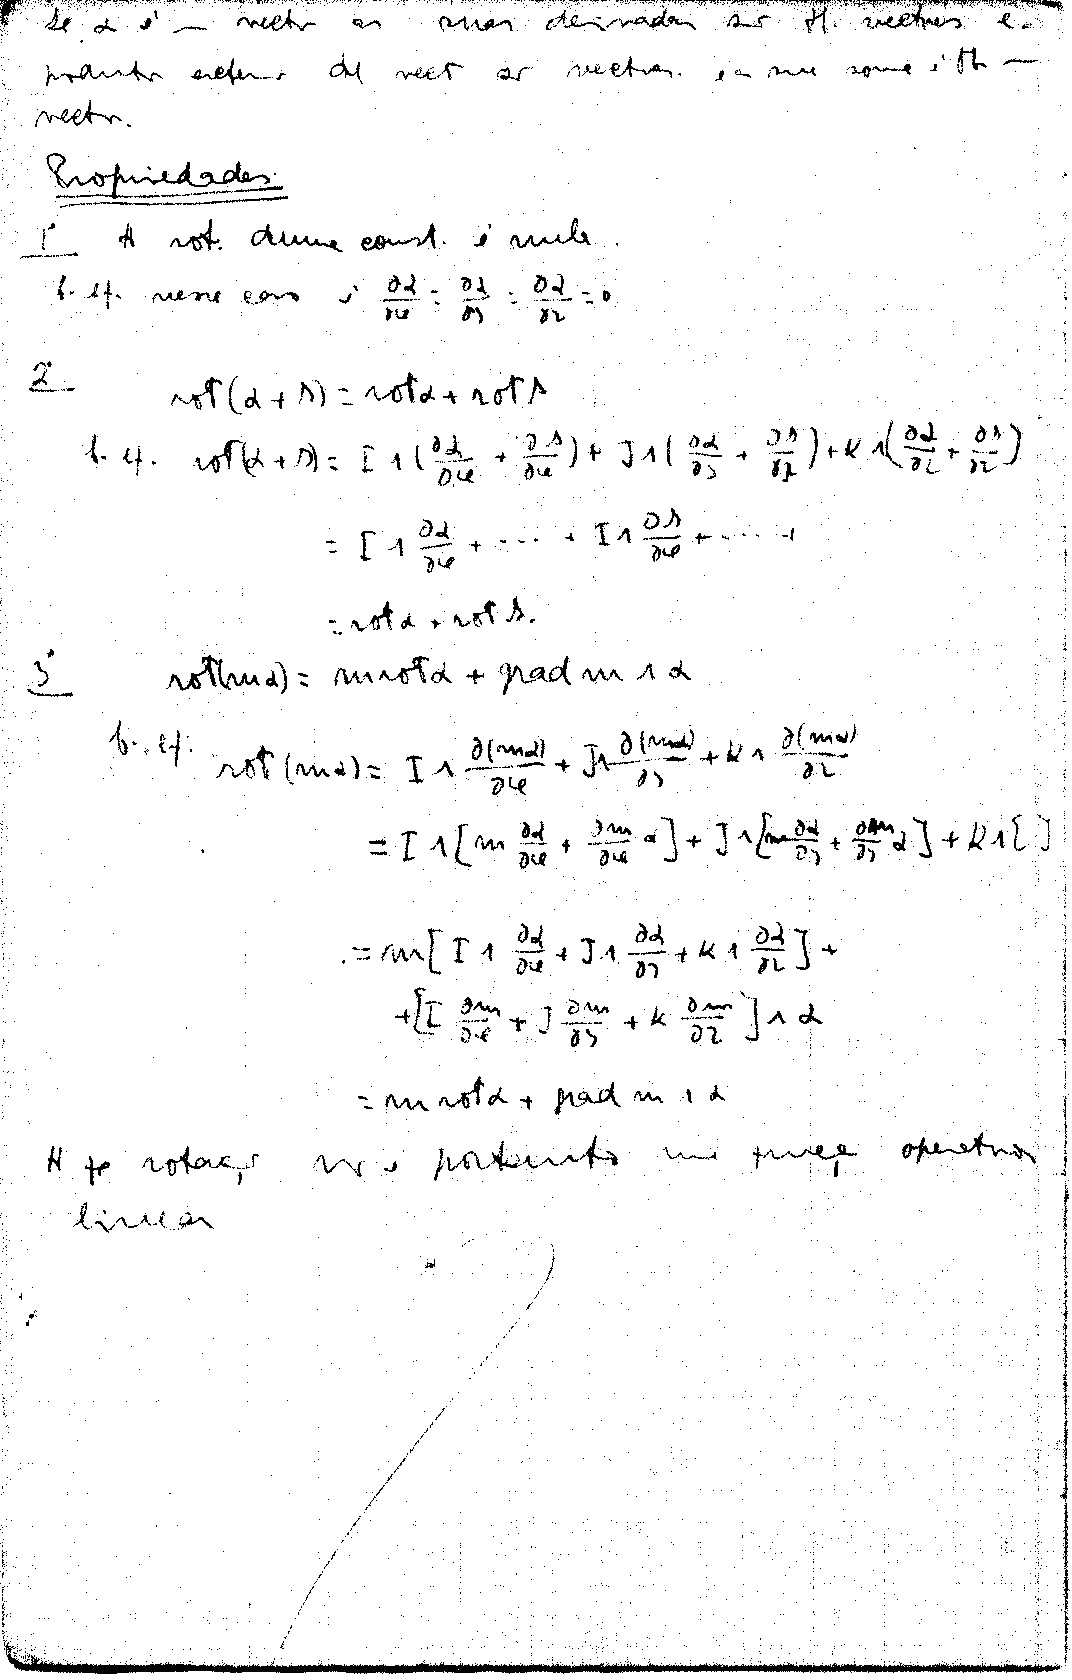 Se α é — vectr as suas derivadas sr tb. vectres e
produto extern. del vect sr vectres. e a sua soma é tb —
vectr.
Propriedades
1ª A rot. duma const. é nula.
b. ef. nesse caso ∂α/∂x = ∂α/∂y = ∂α/∂z = 0
2ª
rot(α + β) = rot α + rot β
b. ef. rot(α + β) = I ∧ (∂α/∂x + ∂β/∂x) + J ∧ (∂α/∂y + ∂β/∂y) + K ∧ (∂α/∂z + ∂β/∂z)
= I ∧ ∂α/∂x + ... + I ∧ ∂β/∂x + ... +
= rot α + rot β.
3ª rot(mα) = m rot α + grad m ∧ α
b. ef. rot(mα) = I ∧ ∂(mα)/∂x + J ∧ ∂(mα)/∂y + K ∧ ∂(mα)/∂z
= I ∧ [m ∂α/∂x + ∂m/∂x α] + J ∧ [m ∂α/∂y + ∂m/∂y α] + K ∧ [ ]
= m[I ∧ ∂α/∂x + J ∧ ∂α/∂y + K ∧ ∂α/∂z] +
+ [I ∂m/∂x + J ∂m/∂y + K ∂m/∂z] ∧ α
= m rot α + grad m ∧ α
A rotaç nr é portanto uma funçã operatria
linear